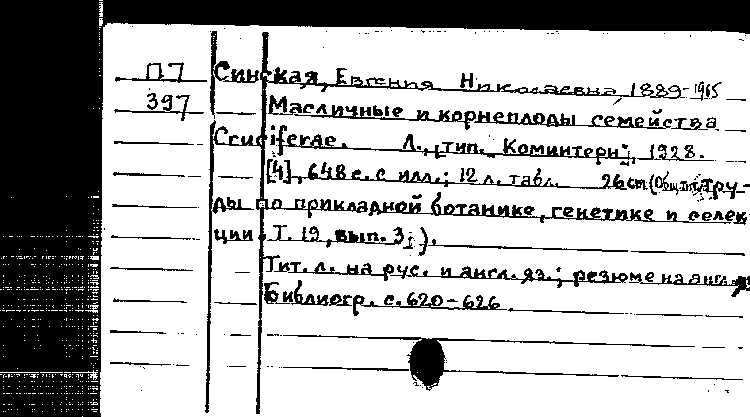 П7 Синская, Евгения Николаевна, 1889-1965
397 Масличные и корнеплоды семейства
Cruciferae. Л., [тип. „Коминтерн“], 1928.
[4], 648 с. с илл.; 12 л. табл. 26 cm (Общ. тит.: Тру-
ды по прикладной ботанике, генетике и селек
ции. Т. 19, вып. 3).
Тит. л. на рус. и англ. яз.; резюме на англ.
Библиогр. с. 620-626.